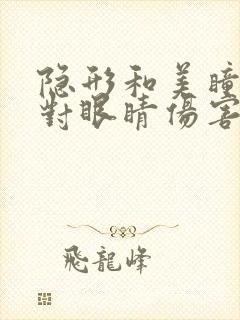 隐形和美瞳
對眼睛傷害
飛龍峰